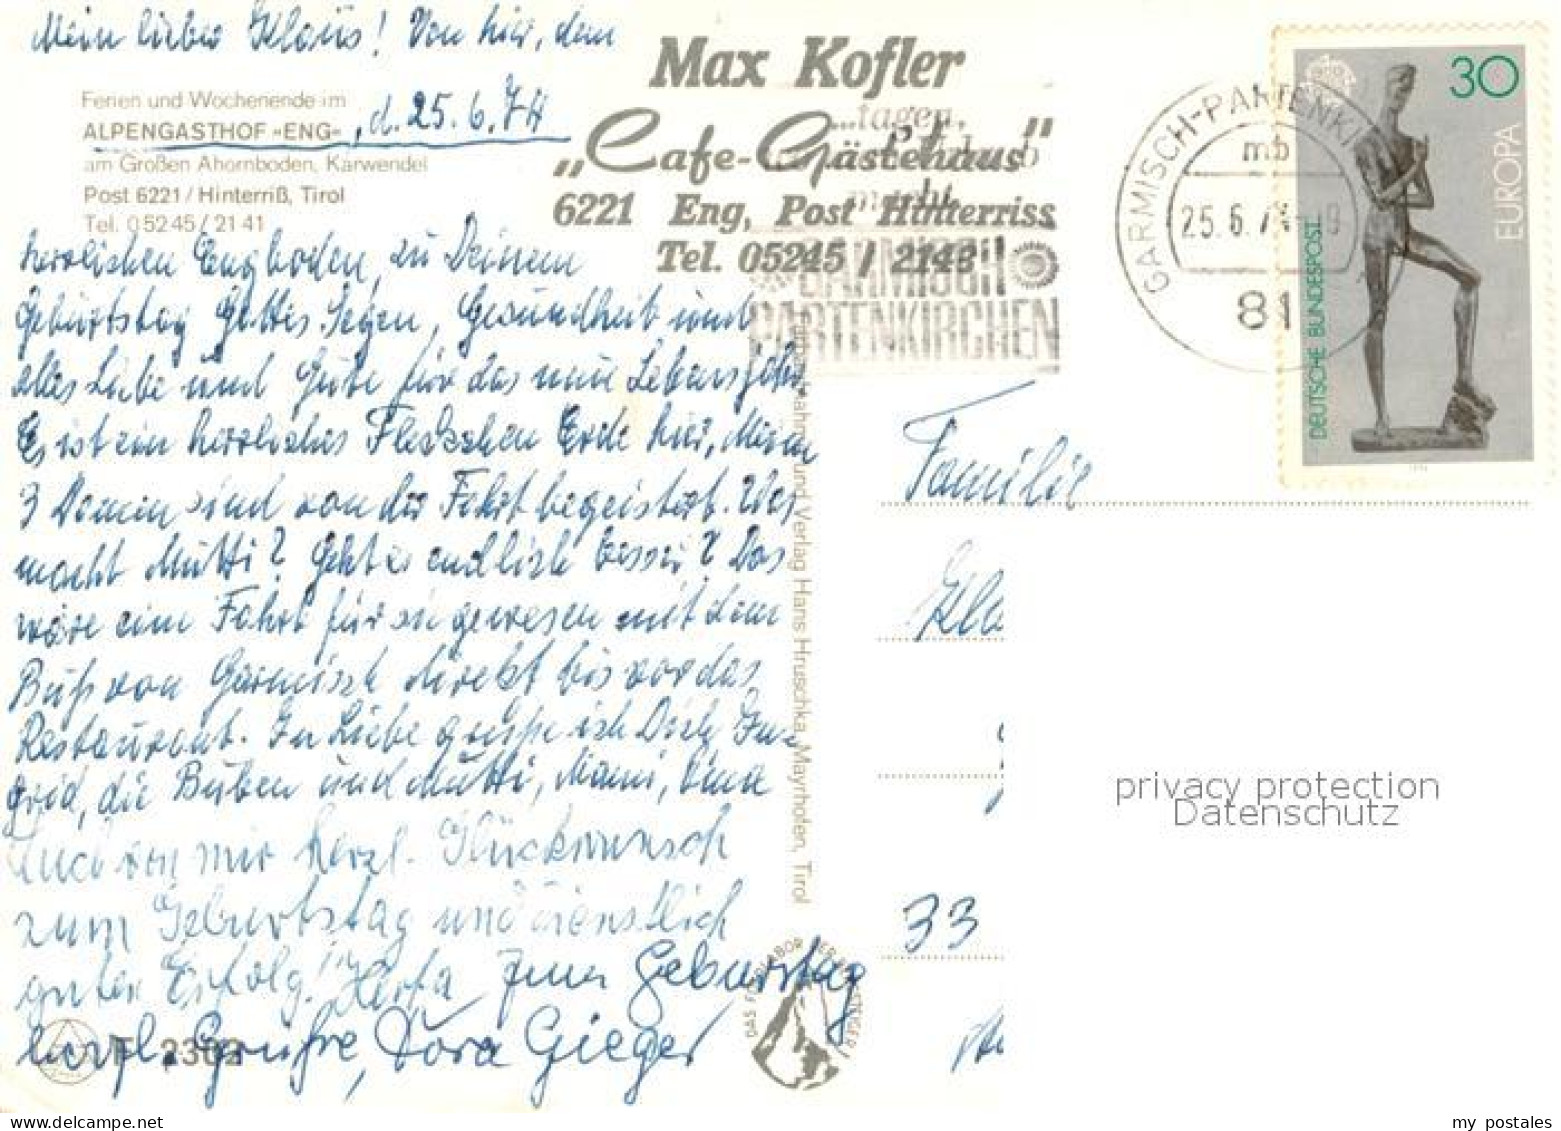 Mein lieber Klaus! Von hier, dem
Ferien und Wochenende im
ALPENGASTHOF »ENG«
, d. 25.6.74
am Großen Ahornboden, Karwendel
Post 6221 / Hinterriß, Tirol
Tel. 0 52 45 / 21 41
Max Kofler
„Cafe-Gästehaus"
6221 Eng, Post Hinterriss
Tel. 05245 / 2143
...tagen,
macht
GARMISCH
PARTENKIRCHEN
GARMISCH-PARTENKI
mb
25.6.7
81
30
EUROPA
DEUTSCHE BUNDESPOST
herrlichen Engboden, zu Deinem
Geburtstag Gottes Segen, Gesundheit und
alles Liebe und Gute für das neue Lebensjahr
Es ist ein herrliches Fleckchen Erde hier, Meine
3 Damen sind von der Fahrt begeistert. Was
macht Mutti? Geht es endlich besser? Das
wäre eine Fahrt für sie gewesen mit dem
Buß von Garmisch direkt bis vor das
Restaurant. In Liebe grüße ich Dich In-
grid, die Buben und Mutti, Mami, Oma
Auch von mir herzl. Glückwunsch
zum Geburtstag und dienstlich
guten Erfolg! Herta
Zum Geburtstag
herzl. Grüße, Dora Gieger
F 2302
und Verlag Hans Hruschka, Mayrhofen, Tirol
DAS FOTOLABOR
Familie
Kla
33
privacy protection
Datenschutz
my postales